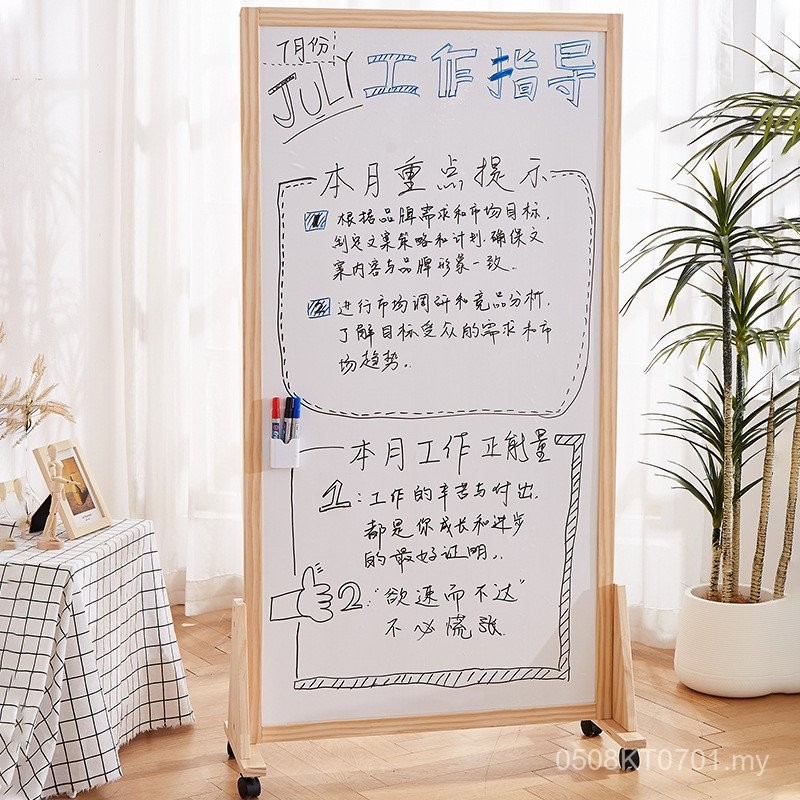 7月份
JULY 工作指导
本月重点提示
1 根据品牌需求和市场目标,
制定文案策略和计划,确保文
案内容与品牌形象一致.
2 进行市场调研和竞品分析,
了解目标受众的需求和市
场趋势.
本月工作正能量
1:工作的辛苦与付出,
都是你成长和进步
的最好证明.
2:"欲速而不达"
不必慌张
0508KT0701.my